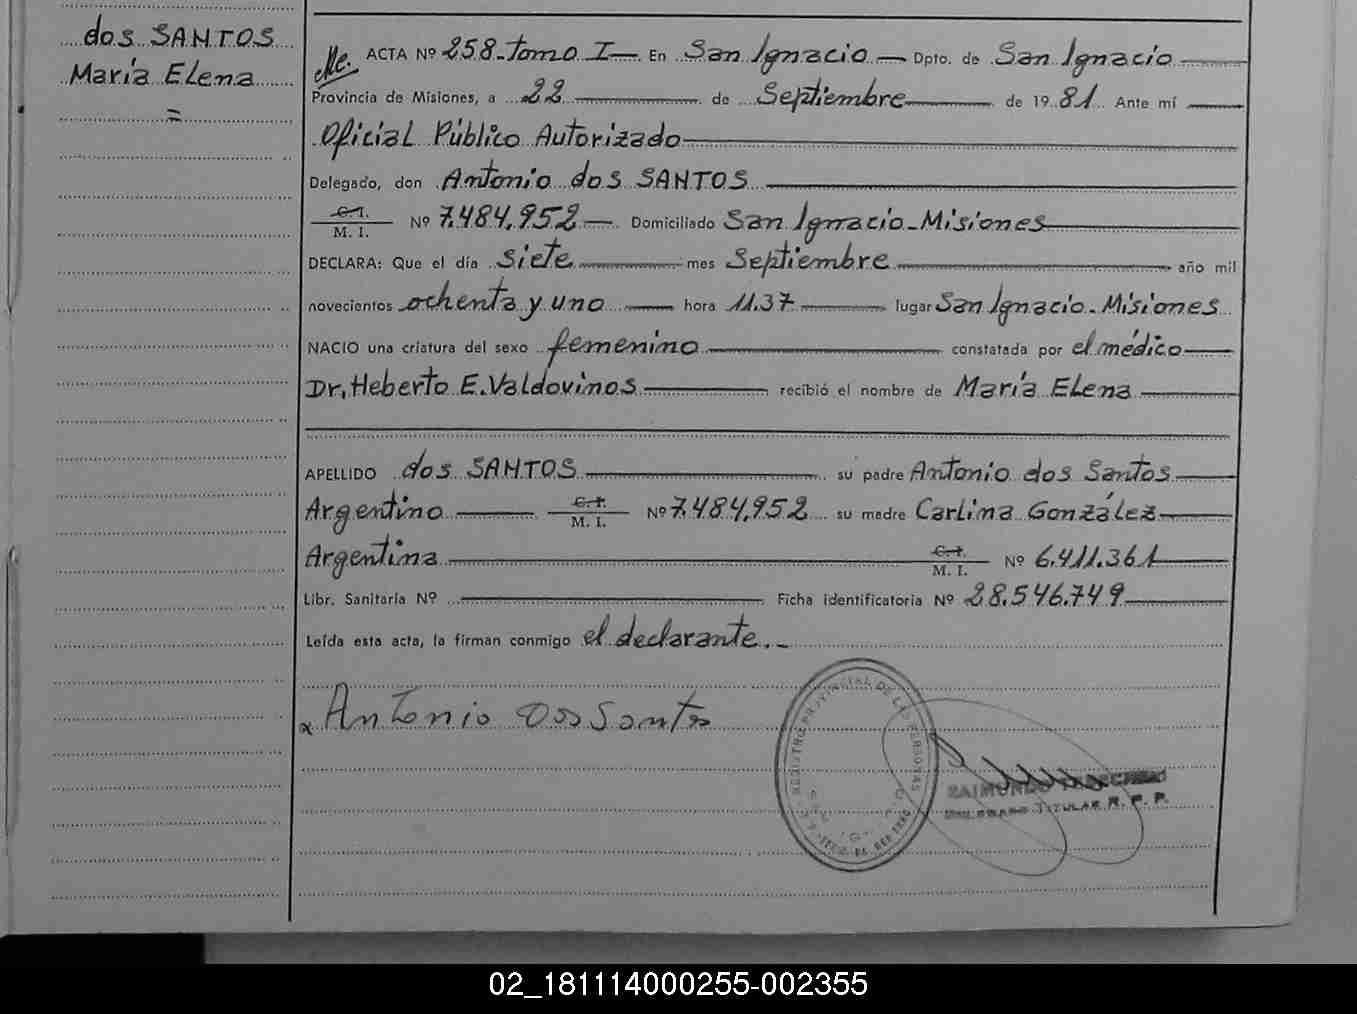 dos SANTOS
María ELena
=
Me.
ACTA Nº 258-Tomo I — En San Ignacio — Dpto. de San Ignacio
Provincia de Misiones, a 22 de Septiembre de 1981 Ante mí
Oficial Público Autorizado
Delegado, don Antonio dos SANTOS
C.I.
M. I. Nº 7.484.952 — Domiciliado San Ignacio-Misiones
DECLARA: Que el día siete mes Septiembre año mil
novecientos ochenta y uno — hora 11.37 lugar San Ignacio-Misiones
NACIO una criatura del sexo femenino constatada por el médico
Dr. Heberto E. Valdovinos recibió el nombre de María ELena
APELLIDO dos SANTOS su padre Antonio dos Santos
Argentino C.I. M. I. Nº 7.484.952 su madre Carlina González
Argentina C.I. M. I. Nº 6.411.361
Libr. Sanitaria Nº Ficha identificatoria Nº 28.546.749
Leída esta acta, la firman conmigo el declarante.-
x Antonio Dos Santos
REGISTRO PROVINCIAL DE LAS PERSONAS
RAIMUNDO
DELEGADO TITULAR R. P. P.
02_181114000255-002355